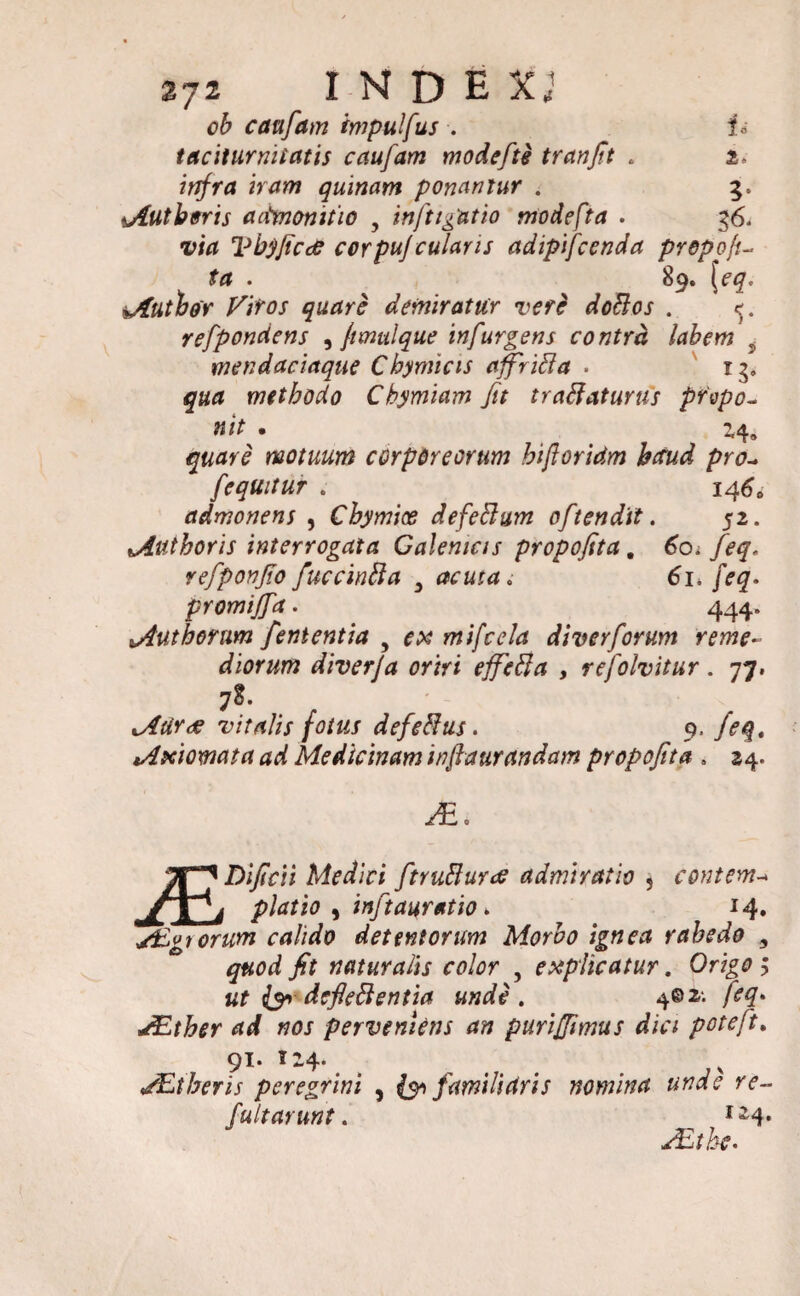 272 INDEX;
ob cauſam impulſus . 1.
taciturnitatis cauſam modeſtè tranſit . 2.
infra iram quinam ponantur . 3.
Authoris admonitio , inſtigatio modeſta . 36.
via Phyſicæ corpuſcularis adipiſcenda propoſi-
ta . 89. ſeq.
Author Viros quarè demiratur verè doctos . 5.
reſpondens , ſimulque inſurgens contrà labem ,
mendaciaque Chymicis affricta . 13.
qua methodo Chymiam ſit tractaturus propo-
nit . 24.
quarè motuum corporeorum hiſtoriàm haud pro-
ſequitur . 146.
admonens , Chymiæ defectum oſtendit . 52.
Authoris interrogata Galenicis propoſita . 60. ſeq.
reſponſio ſuccincta , acuta . 61. ſeq.
promiſſa . 444.
Authorum ſententia , ex miſcela diverſorum reme-
diorum diverſa oriri effecta , reſolvitur . 77.
78.
Auræ vitalis fotus defectus . 9. ſeq.
Axiomata ad Medicinam inſtaurandam propoſita . 24.
Æ.
ÆDificii Medici ſtructuræ admiratio , contem-
platio , inſtauratio . 14.
Ægrorum calido detentorum Morbo ignea rabedo ,
quod ſit naturalis color , explicatur . Origo ;
ut & deflectentia undè . 402. ſeq.
Æther ad nos perveniens an puriſſimus dici poteſt.
91. 124.
Ætheris peregrini , & familiàris nomina undè re-
ſultarunt . 124.
Æthe-